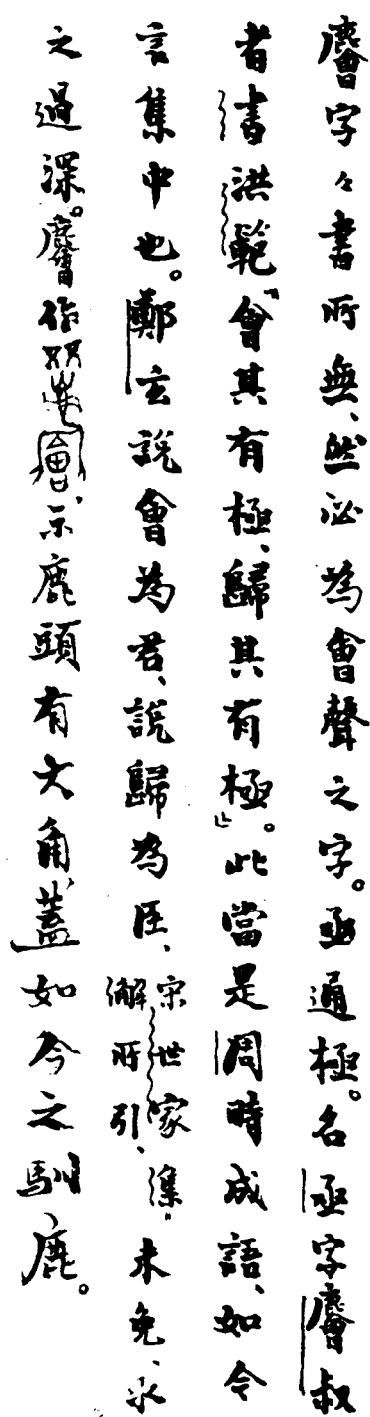 字々書所無、然必為會聲之字。亟通極。名亟字叔
者書洪範「會其有極、歸其有極」。此當是周時成語、如今
言集中也。鄭玄說會為君、說歸為臣、宋世家集解所引、未免、求
之過深。作、示鹿頭有大角、蓋如今之馴鹿。